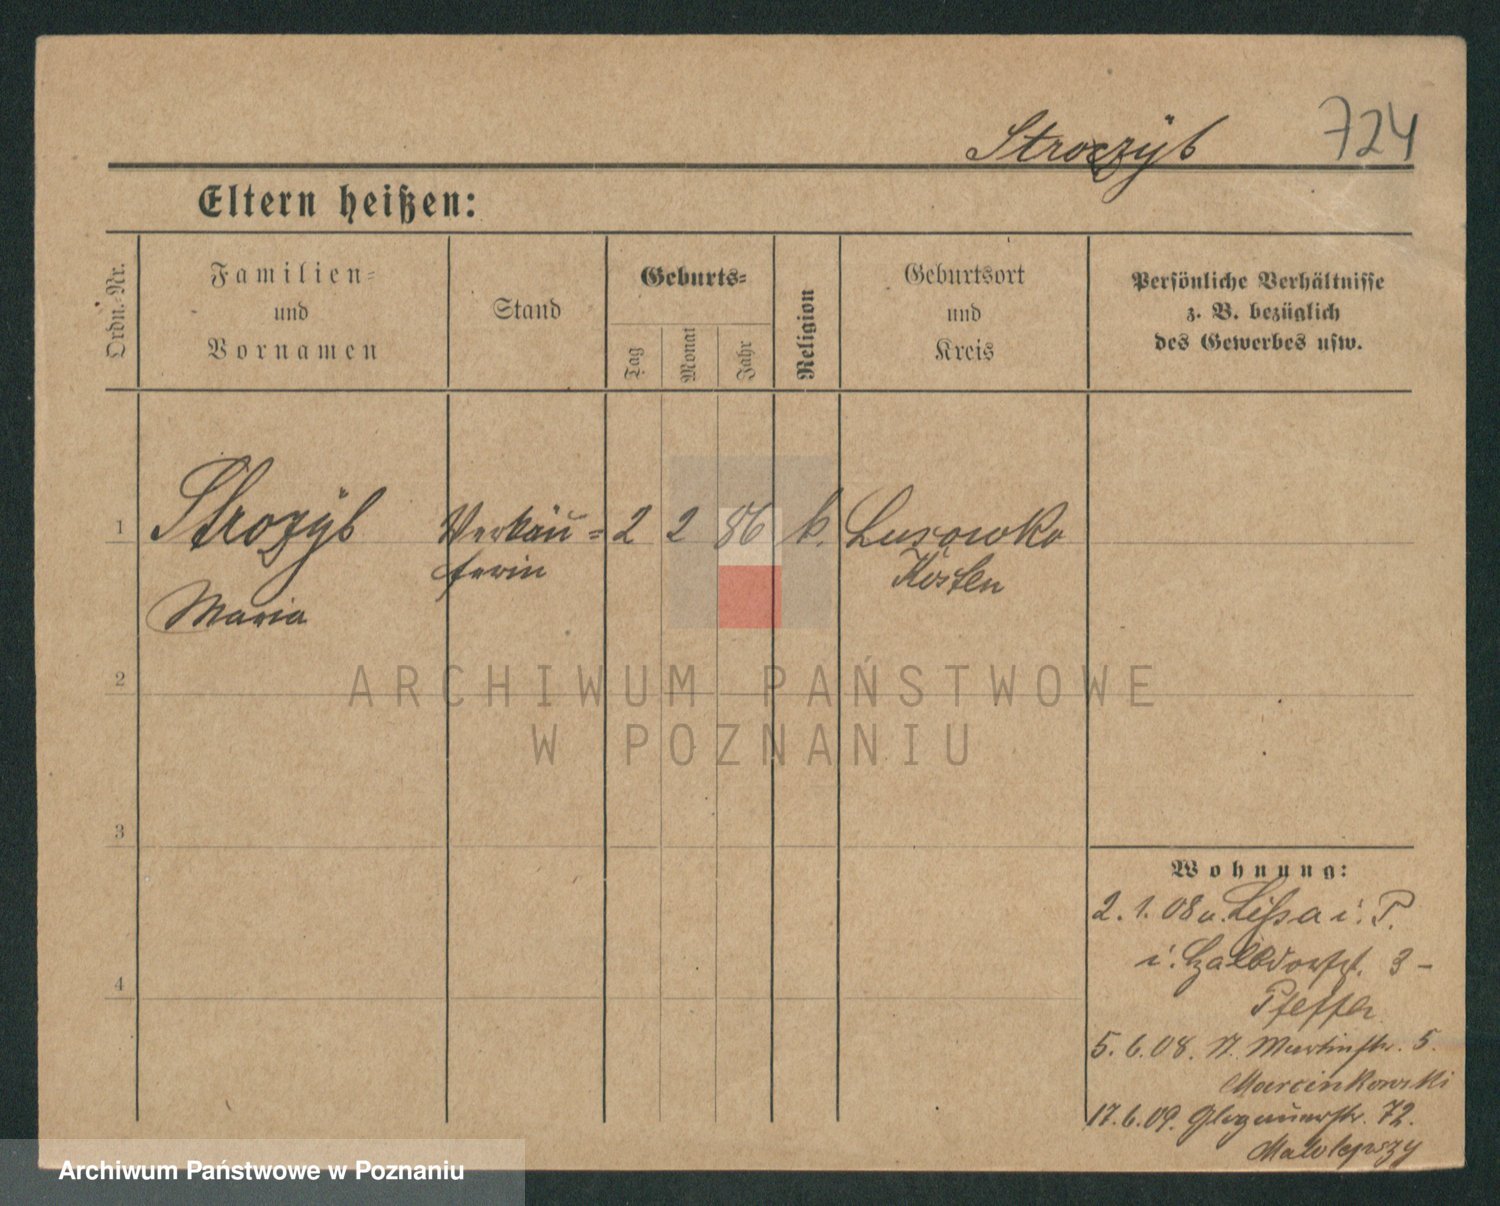 Stroczyb 724
Eltern heißen:
Ordn.-Nr.
Familien-
und
Vornamen
Stand
Geburts-
Tag
Monat
Jahr
Religion
Geburtsort
und
Kreis
Persönliche Verhältnisse
z. B. bezüglich
des Gewerbes usw.
1 Strozyb Verkäu- 2 2 86 k. Lusowko
ferin Kosten
Maria
2
ARCHIWUM PAŃSTWOWE
W POZNANIU
3
Wohnung:
2. 1. 08 v. Lissa i. P.
i. 3 -
Pfeffer
4
5. 6. 08. St. Martinstr. 5.
Marcinkowski
17. 6. 09. Glogauerstr. 72.
Malolepszy
Archiwum Państwowe w Poznaniu